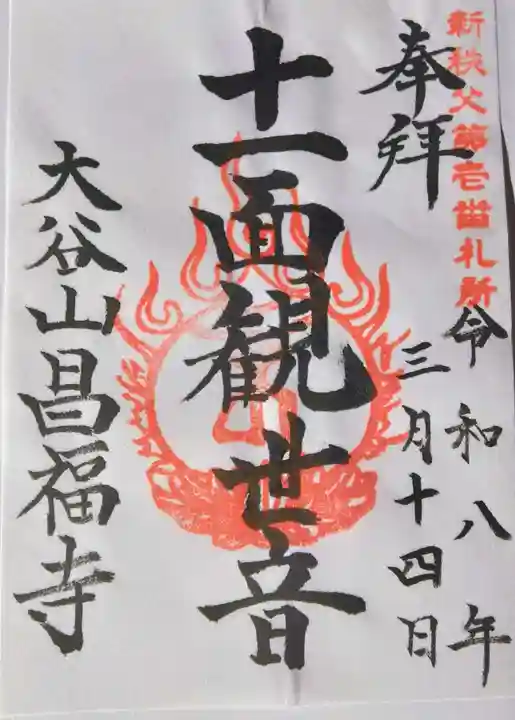 新秩父第壱番札所
奉拝
令和八年
三月十四日
十一面観世音
大谷山昌福寺